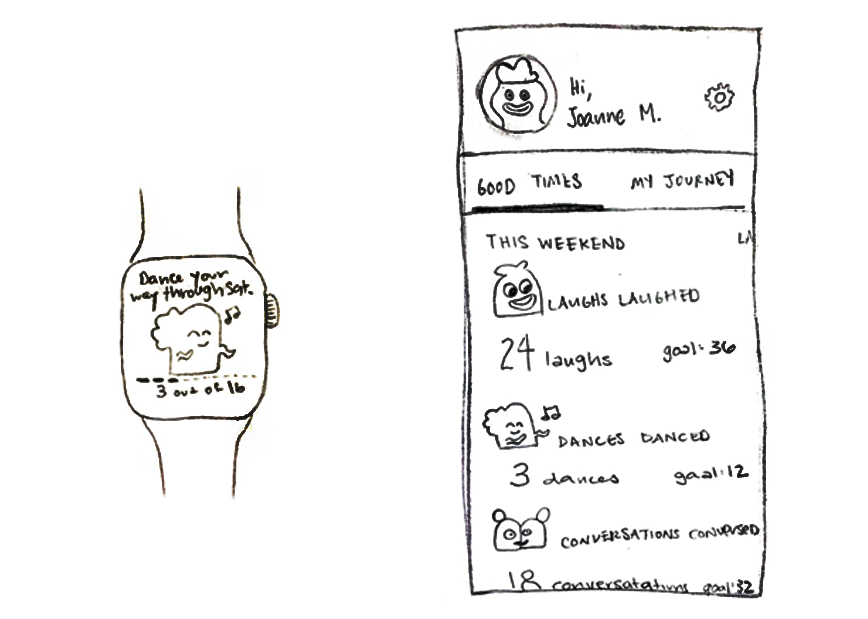 Dance your
way through Sat.
3 out of 16
Hi,
Joanne M.
GOOD TIMES MY JOURNEY
THIS WEEKEND LA
LAUGHS LAUGHED
24 laughs goal: 36
DANCES DANCED
3 dances goal: 12
CONVERSATIONS CONVERSED
18 conversatations goal: 32